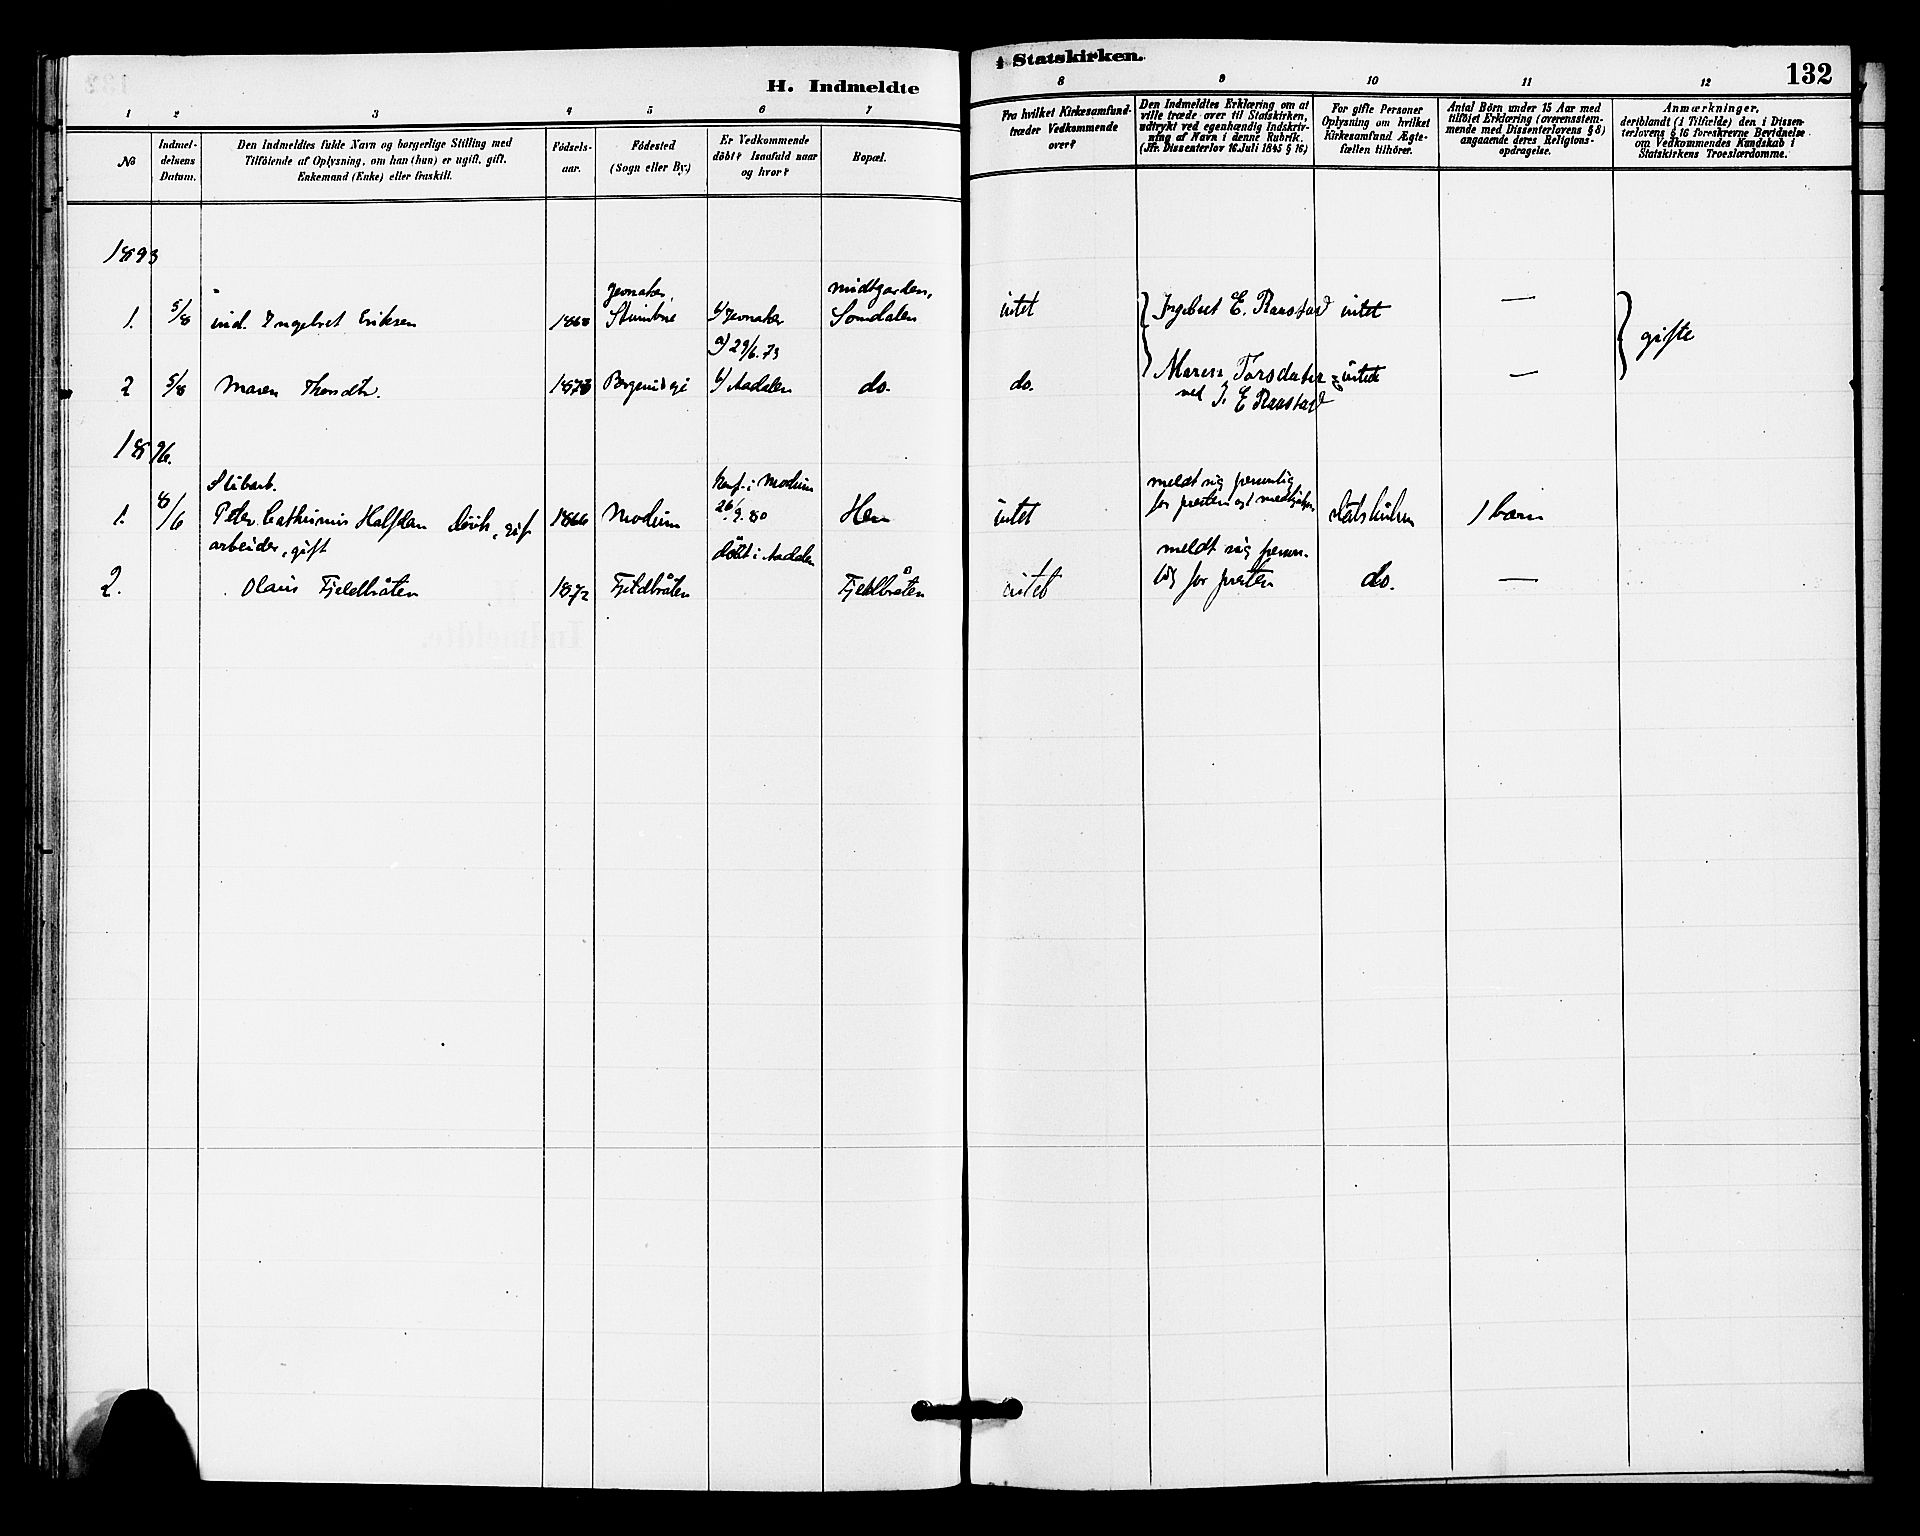 H. Indmeldte
i Statskirken.
132
1 2 3 4 5 6 7
8 9 10 11 12
No
Indmel-
delsens
Datum.
Den Indmeldtes fulde Navn og borgerlige Stilling med
Tilføiende af Oplysning, om han (hun) er ugift, gift,
Enkemand (Enke) eller fraskilt.
Fødsels-
aar.
Fødested
(Sogn eller By.)
Er Vedkommende
døbt? Isaafald naar
og hvor?
Bopæl.
Fra hvilket Kirkesamfund-
træder Vedkommende
over?
Den Indmeldtes Erklæring om at
ville træde over til Statskirken,
udtrykt ved egenhændig Indskriv-
ning af Navn i denne Rubrik.
(Jfr. Dissenterlov 16. Juli 1845 § 16)
For gifte Personer
Oplysning om hvilket
Kirkesamfund Ægte-
fællen tilhører.
Antal Børn under 15 Aar med
tilføiet Erklæring (overensstem-
mende med Dissenterlovens § 8)
angaaende deres Religions-
opdragelse.
Anmærkninger,
deriblandt (i Tilfælde) den i Dissen-
terlovens § 16 foreskrevne Bevidnelse
om Vedkommendes Kundskab i
Statskirkens Troeslærdomme.
1893
Jevnaker, midtgarden,
1. 5/8 ind. Ingebret Eriksen Jevnaker Somdalen intet Ingebret E. Raastad intet —
29/6.73
gifte
2 5/8 Maren Thorsdtr. 1873 Aadalen do. do. Maren Torsdater intet —
ved I. E Raastad
1896.
Slibarb. konf. i Modum meldt sig personlig
1. 8/6 Peter Halfdan gift 1866 Modum 26/9.80 Hen intet for presten og statskirken 1 barn
arbeider, gift døbt i Aadalen meldt sig person-
2. Olaus Fjeldbråten 1872 Fjeldbråten Fjeldbråten intet lig for presten do. —